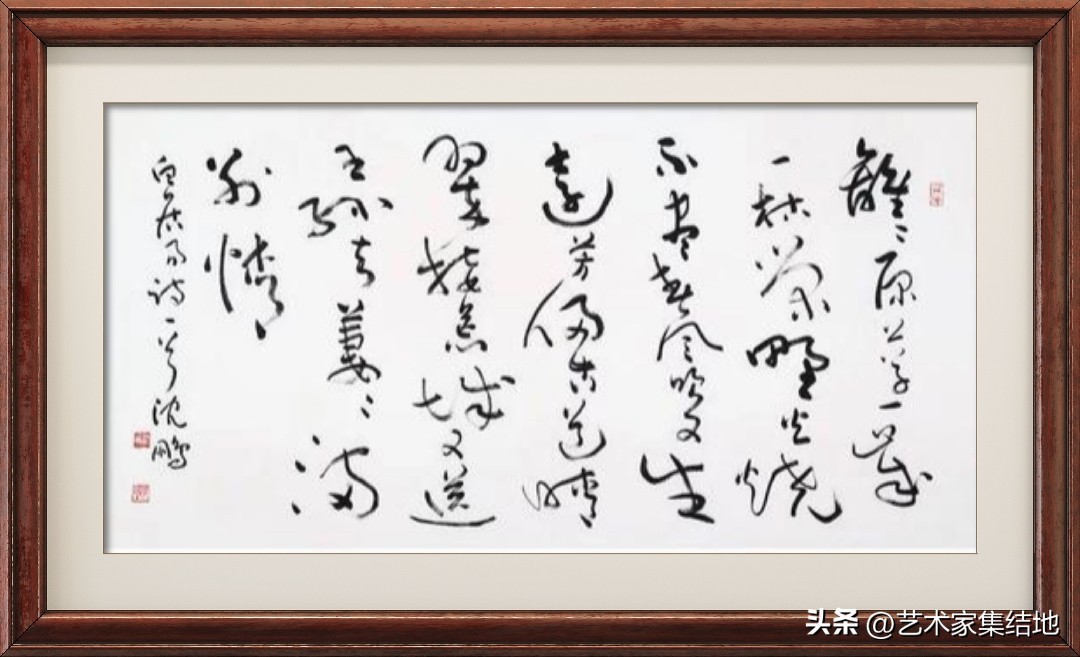 離〻原上草一歲
一枯榮野火燒
不盡春風吹又生
遠芳侵古道晴
翠接荒城又送
王孫去萋〻滿
別情
白居易詩一首 沈鵬
头条 @艺术家集结地